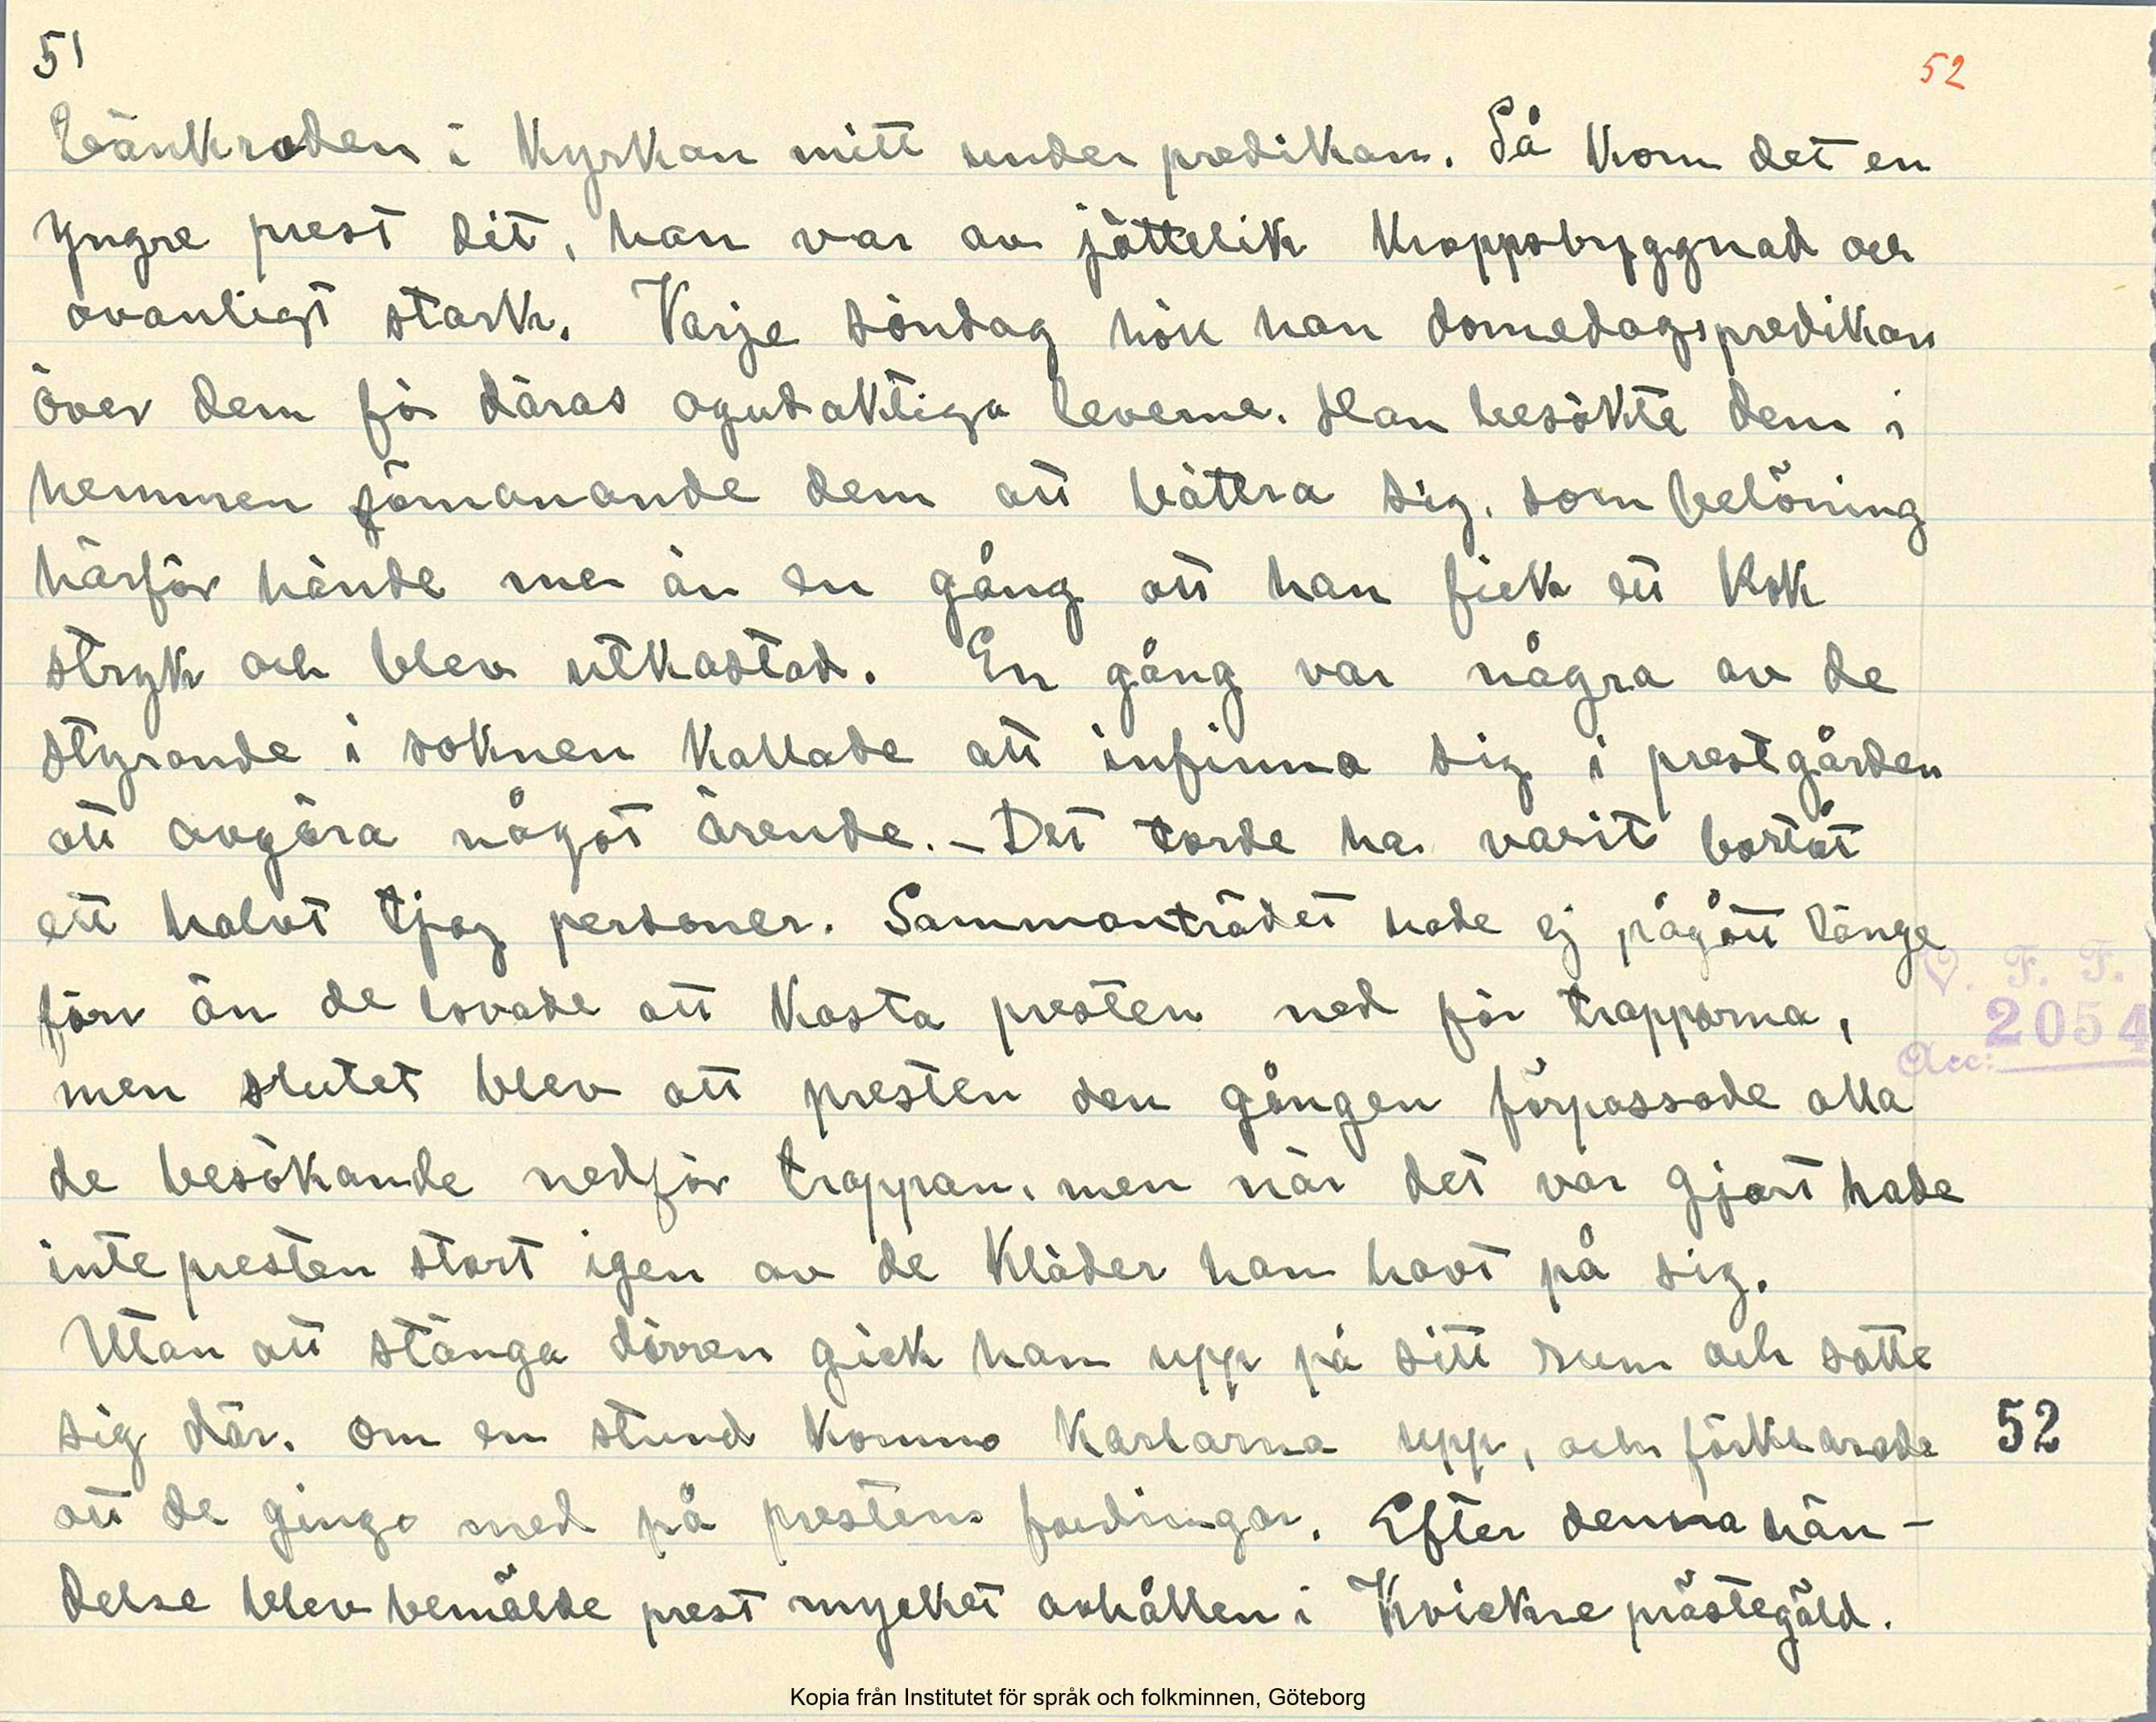 51
52
bänkraden i kyrkan mitt under predikan. Så kom det en
yngre prest dit, han var av jättelik kroppsbyggnad och
ovanligt stark. Varje söndag höll han domedagspredikan
över dem för däras ogudaktiga leverne. Han besökte dem i
hemmen förmanande dem att bättra sig, som belöning
härför hände mer än en gång att han fick ett kok
stryk och blev utkastad. En gång var några av de
styrande i soknen kallade att infinna sig i prestgården
att avgöra något ärende. - Det torde ha varit bortåt
ett halvt tjog personer. Sammanträdet hade ej pågått länge
förr än de lovade att kasta presten ned för trapporna,
V. F. F.
2054
Acc:
men slutet blev att presten den gången förpassade alla
de besökande nedför trappan, men när det var gjort hade
inte presten stort igen av de kläder han havt på sig.
Utan att stänga dörren gick han upp på sitt rum och satte
sig där. Om en stund kommo karlarna upp, och förklarade
52
att de gingo med på prestens fordringar. Efter denna hän-
delse blev bemälde prest mycket avhållen i Kvickne prästegäld.
Kopia från Institutet för språk och folkminnen, Göteborg